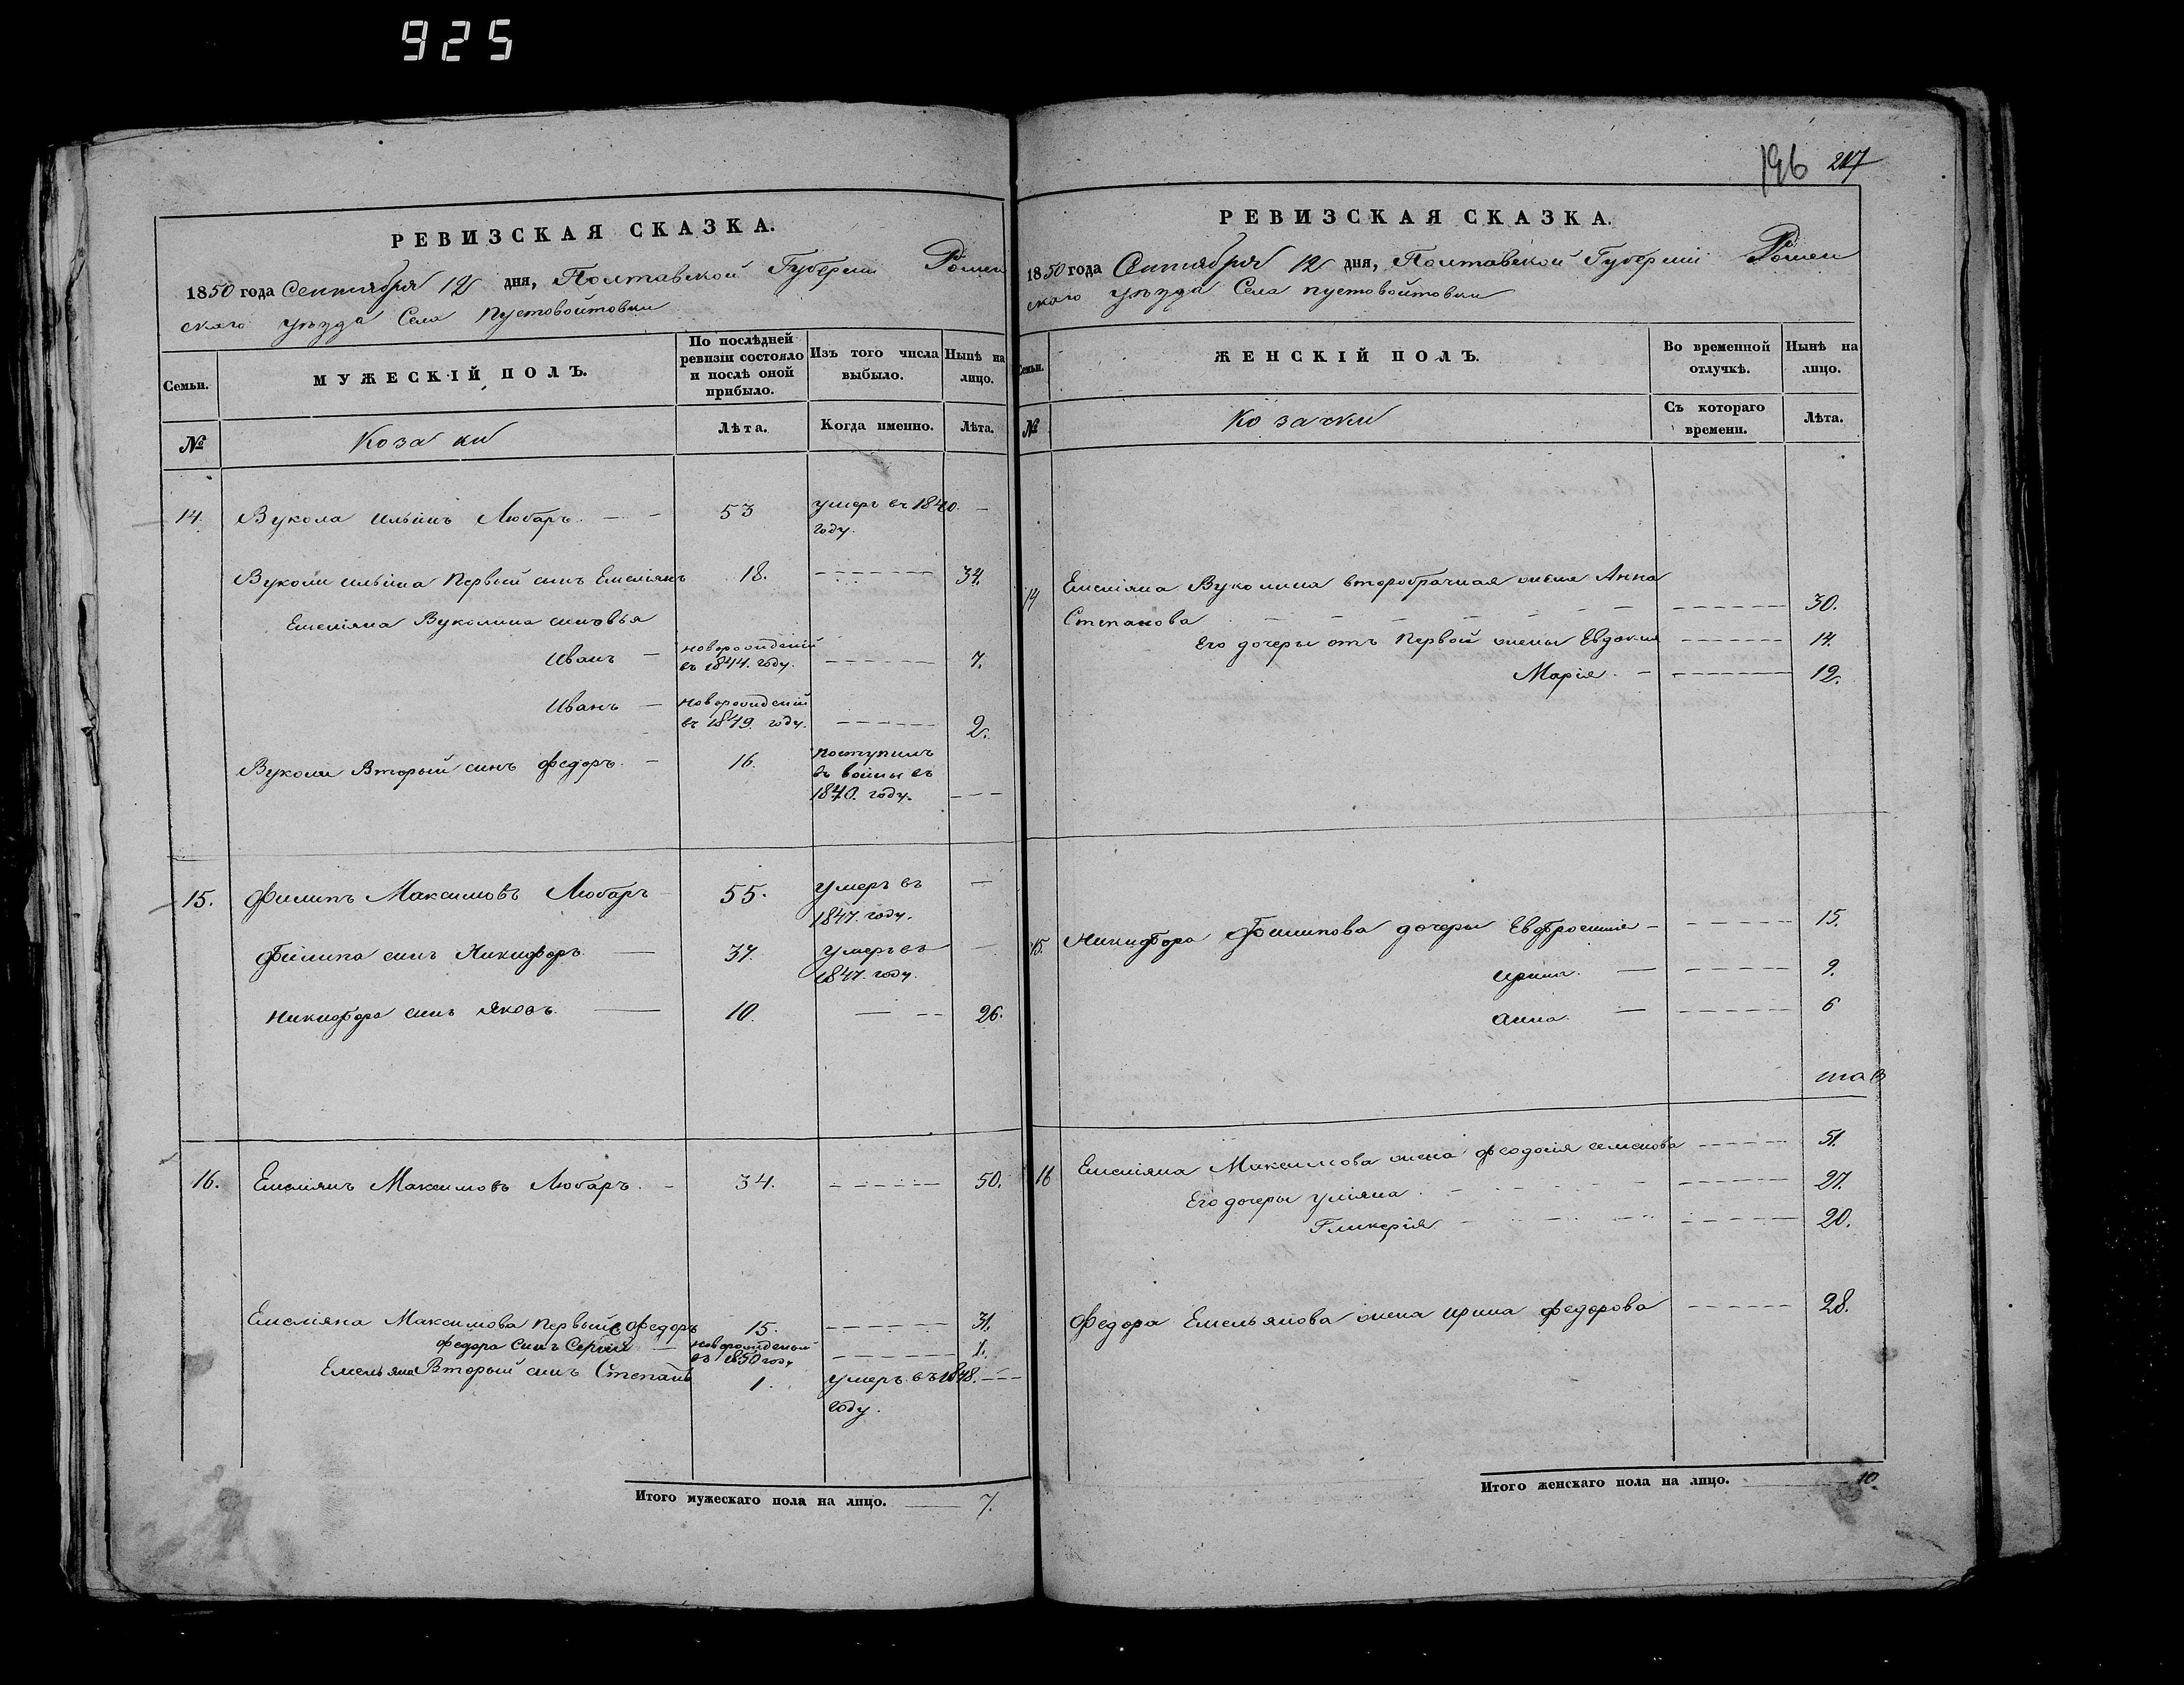 925
РЕВИЗСКАЯ СКАЗКА.
1850 года Сентября 12 дня, Полтавской Губерніи Ромен
скаго уѣзда Села Пустовойтовки
Семьи.
МУЖЕСКІЙ ПОЛЪ.
По послѣдней
ревизіи состояло
и послѣ оной
прибыло.
Изъ того числа
выбыло.
Нынѣ на
лицо.
№
Козаки
Лѣта.
Когда именно.
Лѣта.
14. Вукола Ильинъ Любаръ. 53 умеръ въ 1840.
году.
Вуколы Ильина Первый сынъ Емеліянъ 18. 34.
Емеліяна Вуколина сыновья
Иванъ новорожденій
въ 1844. году. 7.
Иванъ новорожденій
въ 1849. году. 2.
Вуколы Вторый синъ Федоръ. 16. поступилъ
въ войны въ
1840. году.
15. Филипъ Максимовъ Любаръ 55. умеръ въ
1847. году.
Филипа синъ Никифоръ. 37. умеръ въ
1847. году.
Никифора синъ Яковъ. 10. 26.
16. Емеліянъ Максимовъ Любаръ. 34. 50.
Емеліяна Максимова первый с Федоръ 15. 31.
Федора Синъ Сергій новорожденый
въ 1850 году 1.
Емельяна Вторый синъ Степанъ 1. умеръ въ 1848.
году.
Итого мужескаго пола на лицо. 7.
196 217
РЕВИЗСКАЯ СКАЗКА.
1850 года Сентября 12 дня, Полтавской Губерніи Ромен
скаго уѣзда Села Пустовойтовки
Семьи.
ЖЕНСКІЙ ПОЛЪ.
Во временной
отлучкѣ.
Нынѣ на
лицо.
№
Козачки
Съ котораго
времени.
Лѣта.
14 Емеліяна Вуколина второбрачная жена Анна
Степанова 30.
Его дочеры отъ Первой жены Евдокія 14.
Марія. 12.
15. Никифора Филипова дочеры Евфросинія 15.
Ирина. 9.
Анна. 6
16 Емеліяна Максимова жена Феодосія Семенова 51.
Его дочеры Уліяна. 27.
Гликерія 20.
Федора Емельянова жена Ирина Федорова 28.
Итого женскаго пола на лицо. 10.